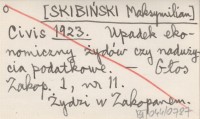 [SKIBIŃSKI Maksymilian.]
Civis 1923. Upadek eko-
nomiczny żydów czy naduży-
cia podatkowe. — Głos
Zakop. 1, nr 11.
Żydzi w Zakopanem.